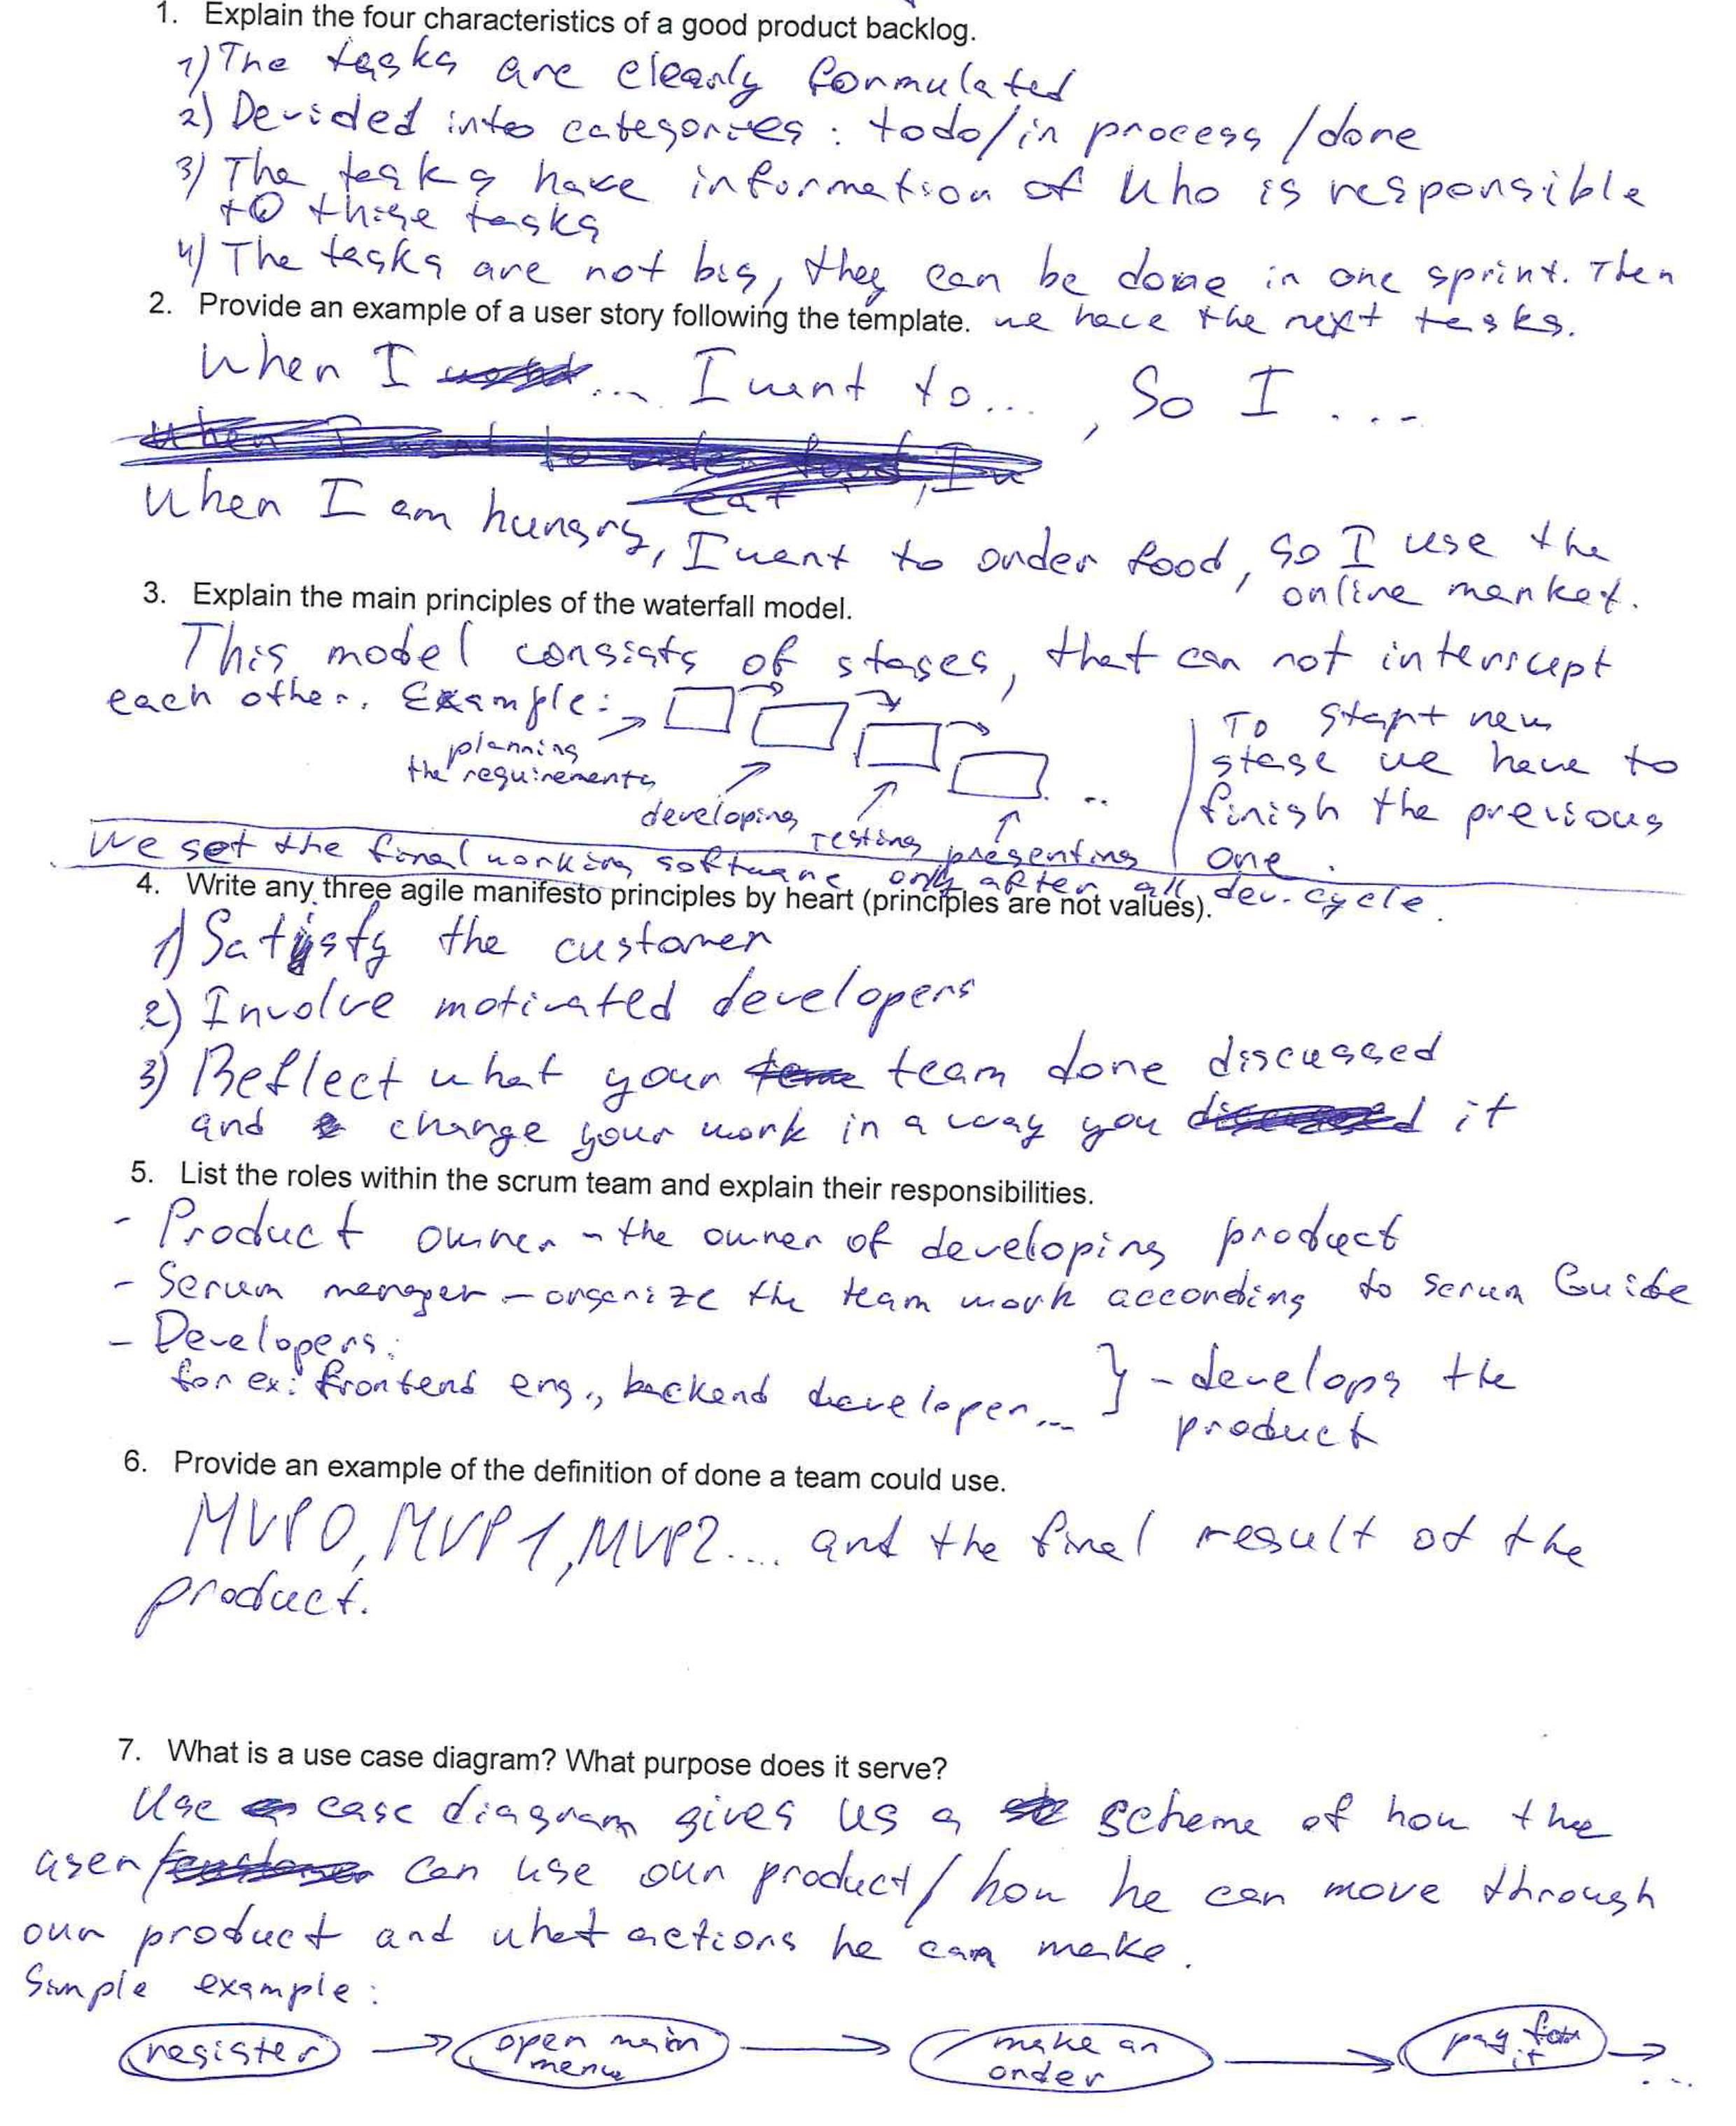 1. Explain the four characteristics of a good product backlog.
1) The tasks are clearly formulated
2) Devided into categories: todo/in process/done
3) The tasks have information of who is responsible
to thise tasks
4) The tasks are not big, they can be done in one sprint. Then
we have the next tasks.
2. Provide an example of a user story following the template.
When I ... I want to..., So I ...
When I am hungry, I want to order food, so I use the
online market.
3. Explain the main principles of the waterfall model.
This model consists of stages, that can not interrcept
each other. Example:
planning
the requirements
developing
testing
presenting
..
To start new
stage we have to
finish the previous
one.
We get the final working software only after all dev. cycle.
4. Write any three agile manifesto principles by heart (principles are not values).
1) Satisfy the customer
2) Involve motivated developers
3) Reflect what your team done discussed
and change your work in a way you it
5. List the roles within the scrum team and explain their responsibilities.
- Product owner - the owner of developing product
- Scrum manager - organize the team work according to Scrum Guide
- Developers:
for ex: frontend eng., backend developer... } - develops the
product
6. Provide an example of the definition of done a team could use.
MVP0, MVP1, MVP2.... and the final result of the
product.
7. What is a use case diagram? What purpose does it serve?
Use case diagram gives us a scheme of how the
user/ can use our product/ how he can move through
our product and what actions he can make.
Simple example:
register → open main
menu → make an
order → pay for
it → ...